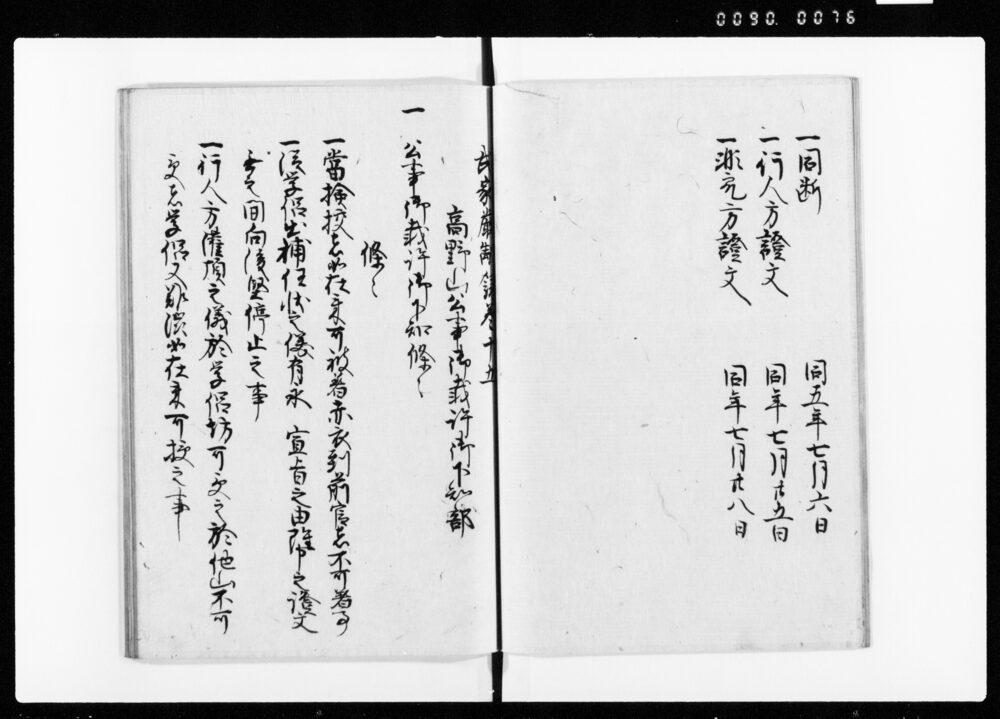 0090.0076
一同断　同五年七月六日
一行人方證文　同年七月廿五日
一非事吏方證文　同年七月廿八日
武家嚴制録巻十五
高野山公事御裁許御下知部
一　公事御裁許御下知條〻
條〻
一當検校者如在来可被着赤衣到前官者不可着事
一従学侶出補任状之儀有永　宣旨之由雖申之證文
無之間向後堅停止之事
一行人方灌頂之儀於学侶坊可受之於他山不可
受若学侶又難渋如在来可授之事